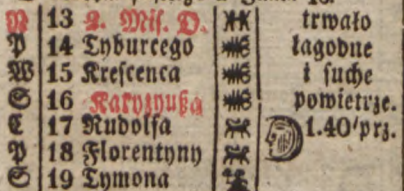 N 13 2. Miſ. D. trwało
P 14 Tyburcego łagodne
W 15 Kreſcenca i ſuche
S 16 Katyzyuſza powietrze.
C 17 Rudolfa 1.40′prz.
P 18 Florentyny
S 19 Tymona